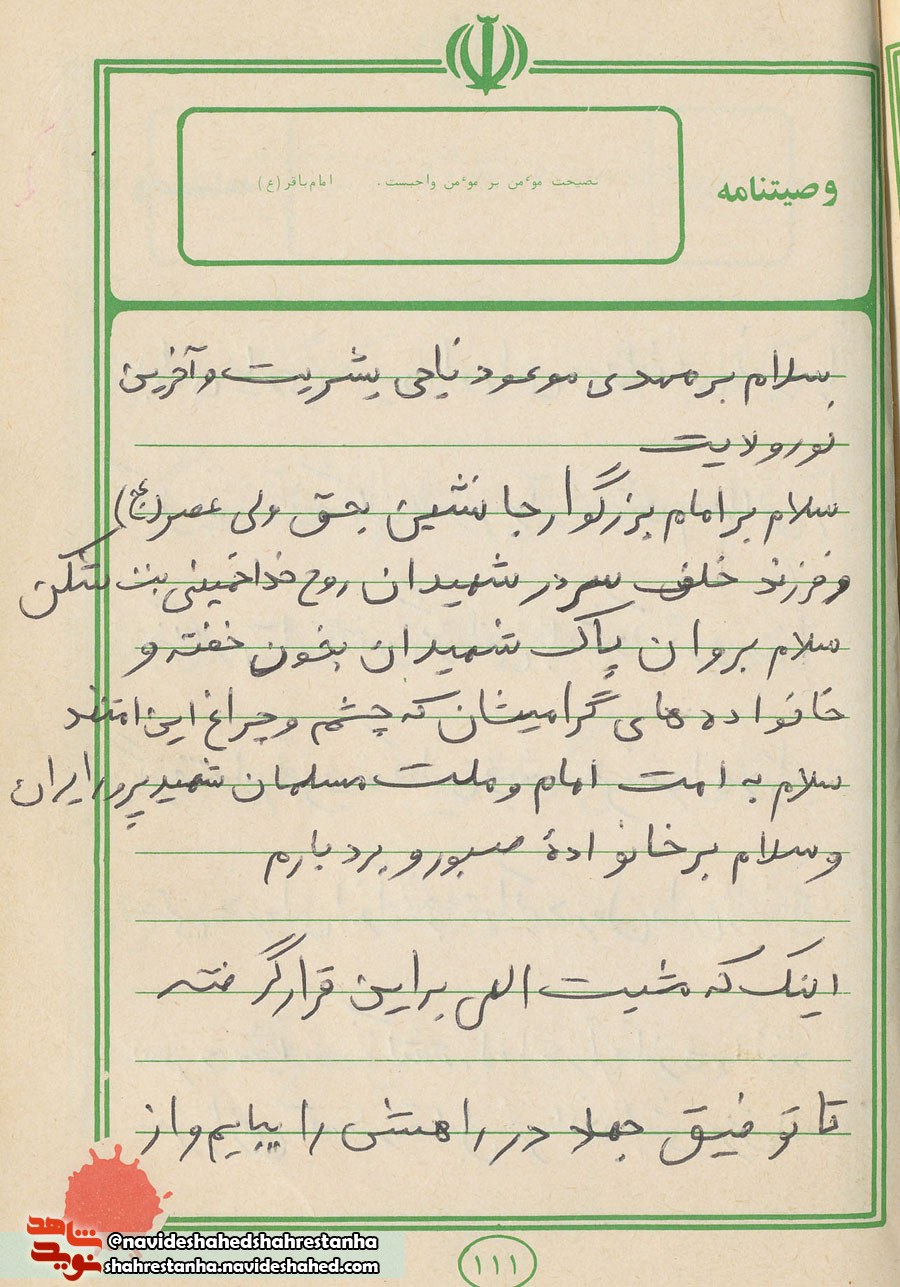 وصیتنامه
نصیحت موءمن بر موءمن واجبست . امام باقر (ع)
سلام بر مهدی موعود ناجی بشریت و آخرین
نور ولایت
سلام بر امام بزرگوار جانشین بحق ولی عصر (عج)
و فرزند خلف سردر شهیدان روح خدا خمینی بت شکن
سلام بر وان پاک شهیدان بخون خفته و
خانواده های گرامیشان که چشم و چراغ این امتند
سلام به امت امام و ملت مسلمان شهید پرور ایران
و سلام بر خانوادهٔ صبور و بردبارم
اینک که مشیت الهی بر این قرار گرفته
تا توفیق جهاد در راهش را بیابم و از
شاهد
نوید
@navideshahedshahrestanha
shahrestanha.navideshahed.com
۱۱۱